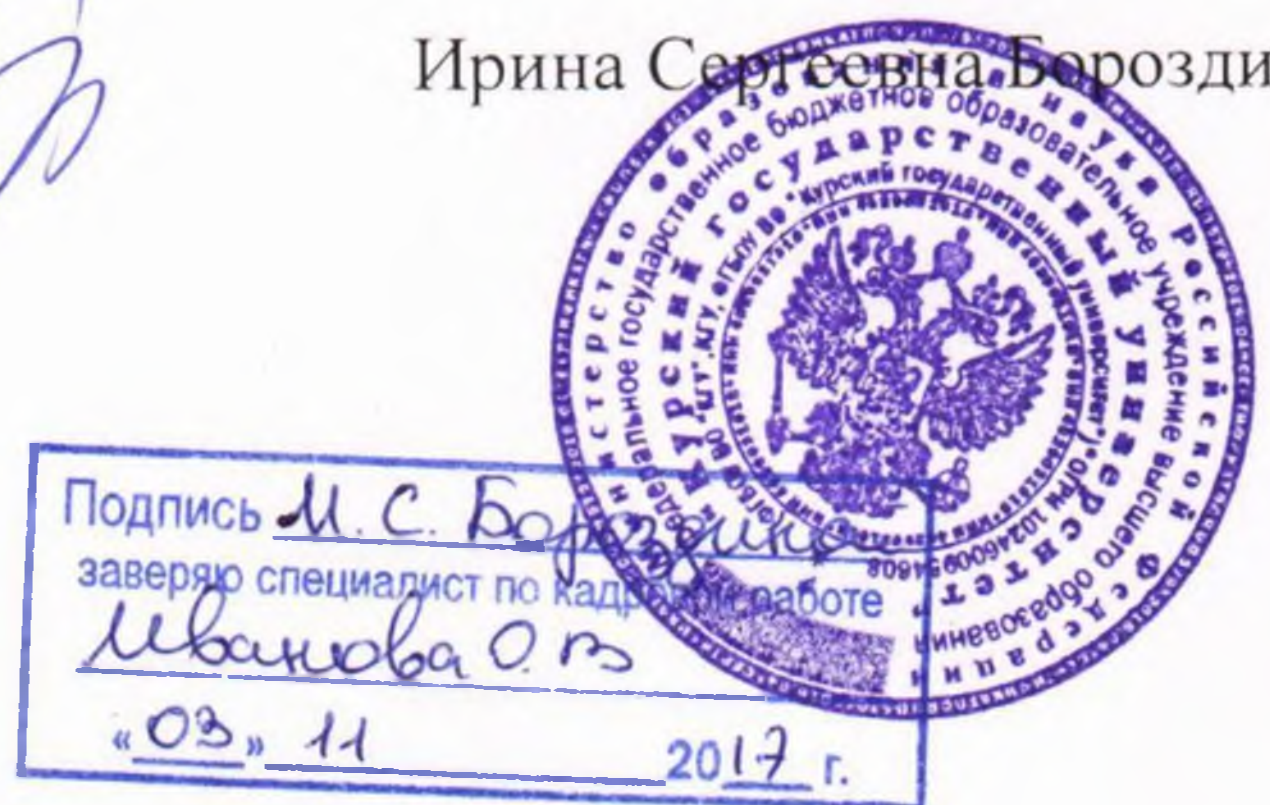 Ирина Сергеевна Борозди
министерство образования и науки российской Федерации
Федеральное государственное бюджетное образовательное учреждение высшего образования
"Курский государственный университет"
"Курский государственный университет") * ОГРН 1024600954608
Подпись И. С. Бороздиной
заверяю специалист по кадровой работе
Иванова О. В
« 03 » 11 2017 г.